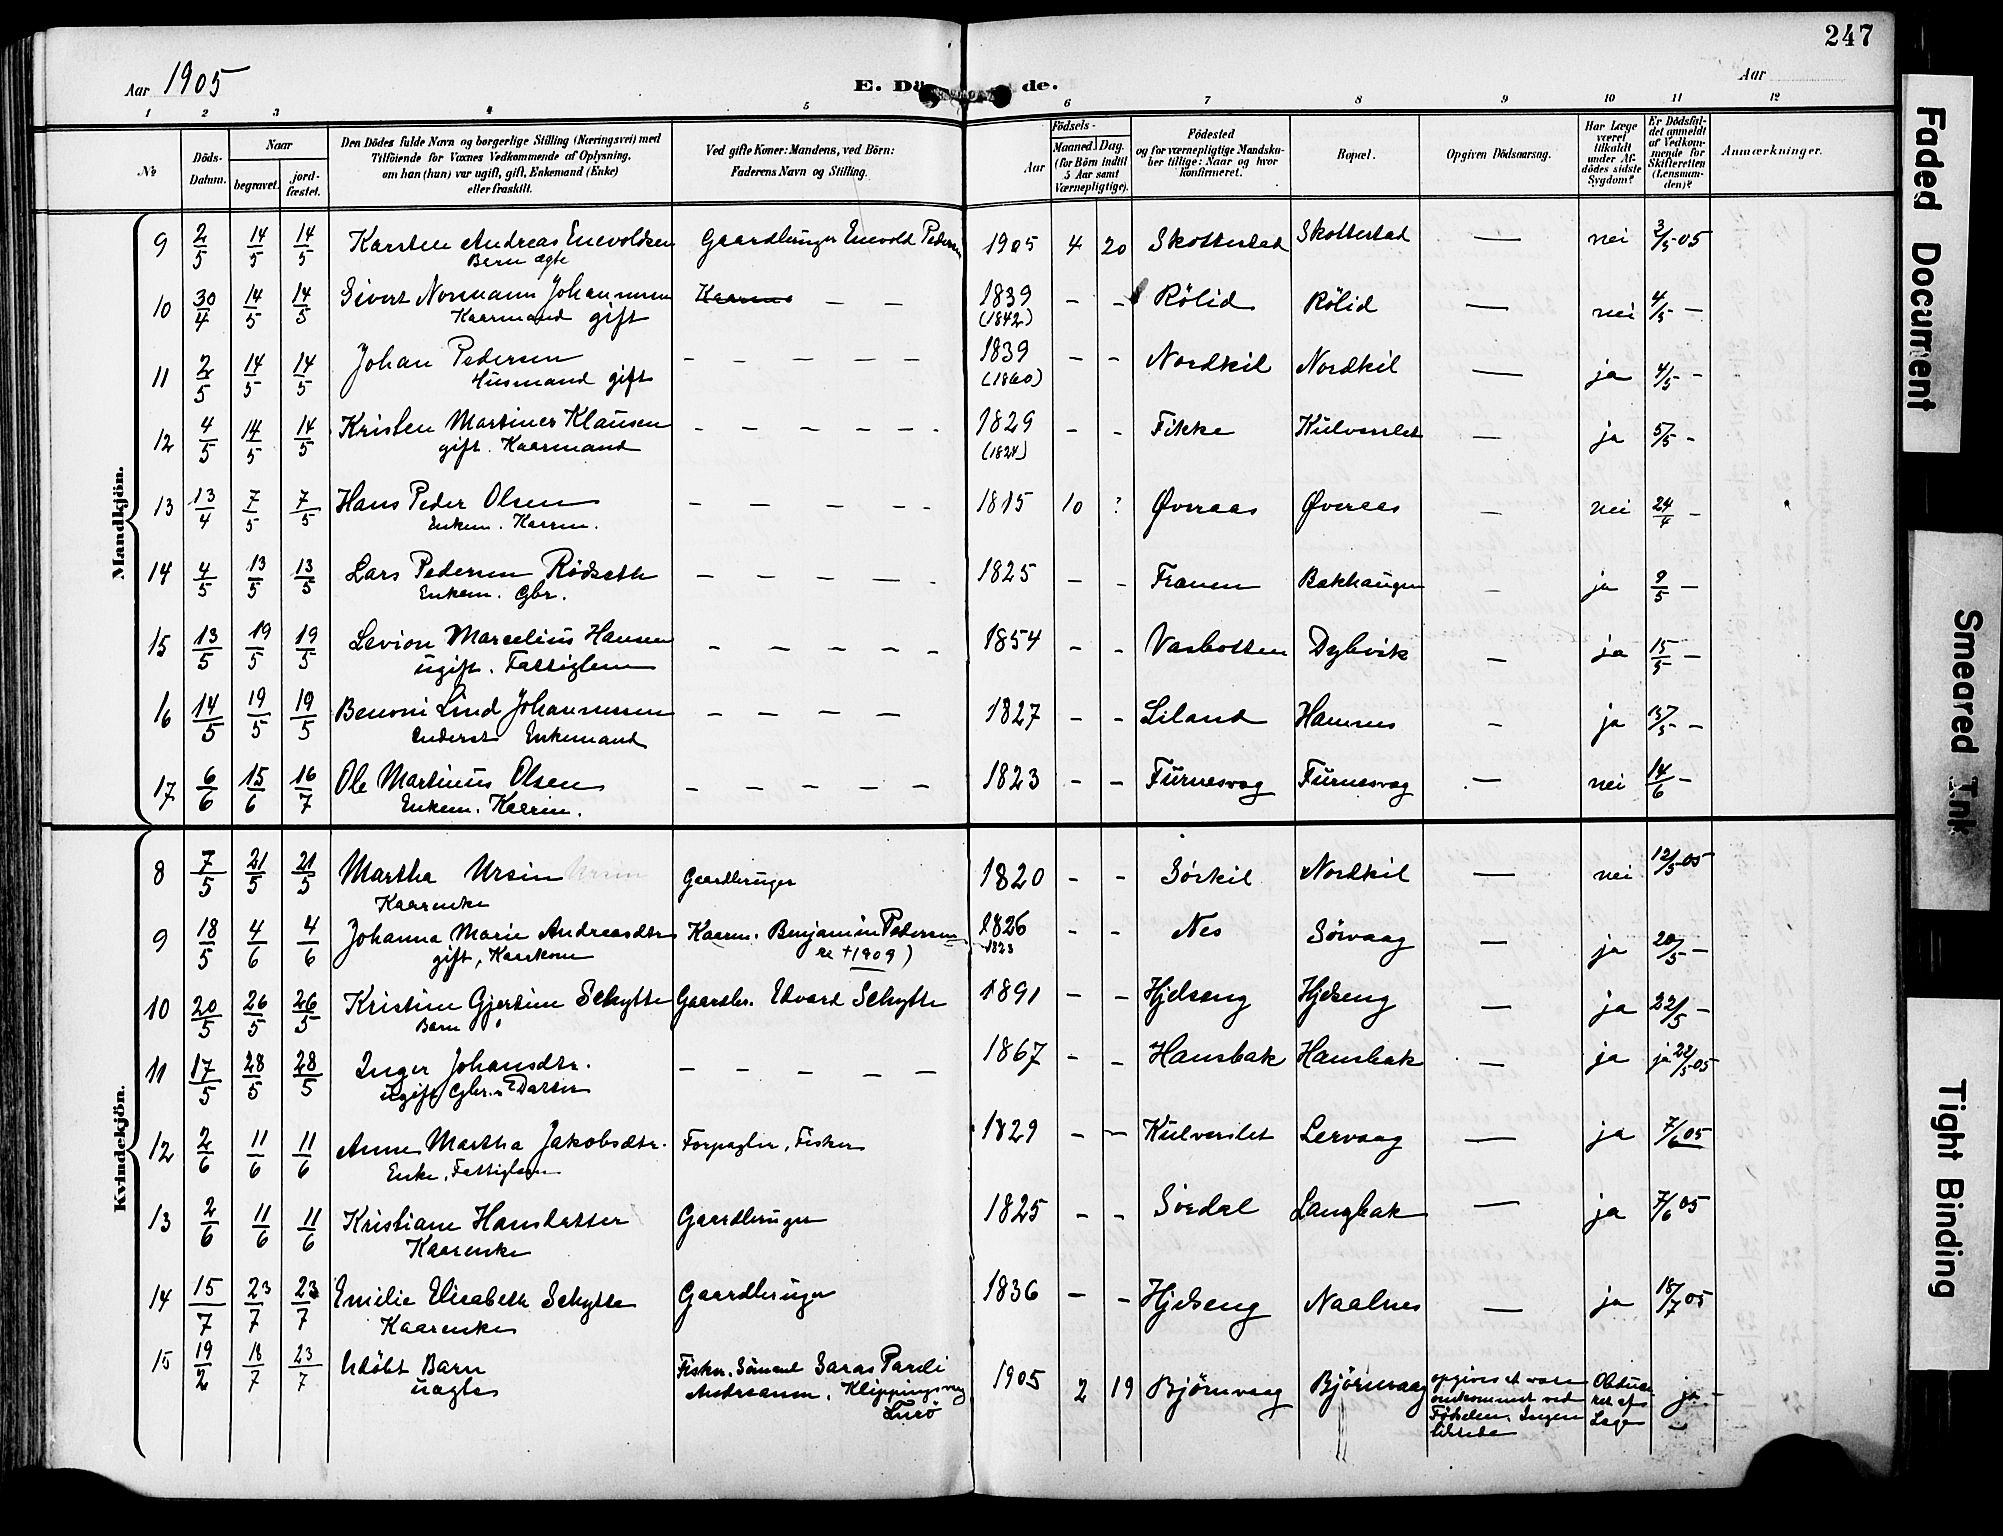 247
Aar 1905
E. Dö de.
Aar
1 2 3 4 5 6 7 8 9 10 11 12
No
Döds-Datum.
Naar
begravet.
jord-fæstet.
Den Dödes fulde Navn og borgerlige Stilling (Næringsvei) med
Tilföiende for Voxnes Vedkommende af Oplysning,
om han (hun) var ugift, gift, Enkemand (Enke)
eller fraskilt.
Ved gifte Koner: Mandens, ved Börn:
Faderens Navn og Stilling.
Födsels-
Aar
Maaned. Dag.
(for Börn indtil
5 Aar samt
Værnepligtige).
Födested
og for værnepligtige Mandska-
ber tillige: Naar og hvor
konfirmeret.
Bopæl.
Opgiven Dödsaarsag.
Har Læge
været
tilkaldt
under Af-
dödes sidste
Sygdom?
Er Dödsfal-
det anmeldt
af Vedkom-
mende for
Skifteretten
(Lensman-
den)?
Anmærkninger.
Mandkjön.
9 2/5 14/5 14/5 Karsten Andreas Enevoldsen Gaardbruger Enevold Pedersen 1905 4 20 Skottestad Skottestad — nei 3/5 05
Barn ægte
10 30/4 14/5 14/5 Sivert Normann Johannesen Kaarma — — 1839 - - Rölid Rölid — nei 4/5 —
Kaarmand gift (1842)
11 2/5 14/5 14/5 Johan Pedersen — — — — — 1839 - - Nordkil Nordkil — ja 4/5 -
Husmand gift (1860)
12 4/5 14/5 14/5 Kristen Martines Klausen — — — — — 1829 - - Fikke Kulverslet — ja 5/5 -
gift. Kaarmand (1824)
13 13/4 7/5 7/5 Hans Peder Olsen — — — — 1815 10 ? Øveraas Øveraas — nei 24/4 -
Enkem. Kaarm.
14 4/5 13/5 13/5 Lars Pedersen Rödseth — — — — 1825 - - Franen Bakhaugen — ja 9/5 —
Enkem. Gbr.
15 13/5 19/5 19/5 - - - - - 1854 - - Vasbotten Dybvik — ja 15/5 —
ugift. Fattiglem
16 14/5 19/5 19/5 Benoni Lind Johannessen - - - - 1827 - - Liland Hamnes - ja 17/5 -
Inderst Enkemand
17 6/6 15/6 16/7 Ole Martinus Olsen - - - - - 1823 - - Furnesvag Furnesvag — nei 14/6 -
Enkem. Kaarm.
Kvindekjön.
8 7/5 21/5 21/5 Martha Ursin Gaardbruger 1820 - - Sörkil Nordkil — nei 12/5 05
Kaarenke
9 18/5 4/6 4/6 Johanna Marie Andreasdtr Kaarm. Benjamin Pedersen 1826 - - Nes Sörvaag — ja 20/5 —
gift, Kaarkone † 1909) 1823
10 20/5 26/5 26/5 Kristine Gjertine Schytte Gaardbr. Edvard Schytte 1891 - - Hjelseng Hjelseng — ja 22/5 —
Barn
11 17/5 28/5 28/5 Inger Johansdtr. - - - - - 1867 - - Hansbak Hansbak — ja ja 22/5 05
ugift, Gbr.s Datter
12 2/6 11/6 11/6 Anne Martha Jakobsdtr. Forpagter, Fisker 1829 - - Kulverslet Lervaag — ja 7/6 05
Enke, Fattiglem
13 2/6 11/6 11/6 Kristiane Hansdatter Gaardbruger 1825 - - Sördal Langbak — ja 7/6 05
Kaarenke
14 15/7 23/7 23/7 Emilie Elisabeth Schytte Gaardbruger 1836 - - Hjelseng Naalnes — ja 18/7 05
Kaarenke
15 19/2 18/7 23/7 Udöbt Barn Fisker, Sömand 1905 2 19 Björnvaag Björnvaag opgives at være ja -
uægte Andreassen, Klippingsvag omkommet ved
Fødselen. Ingen
Læge
Faded Document
Smeared Ink
Tight Binding